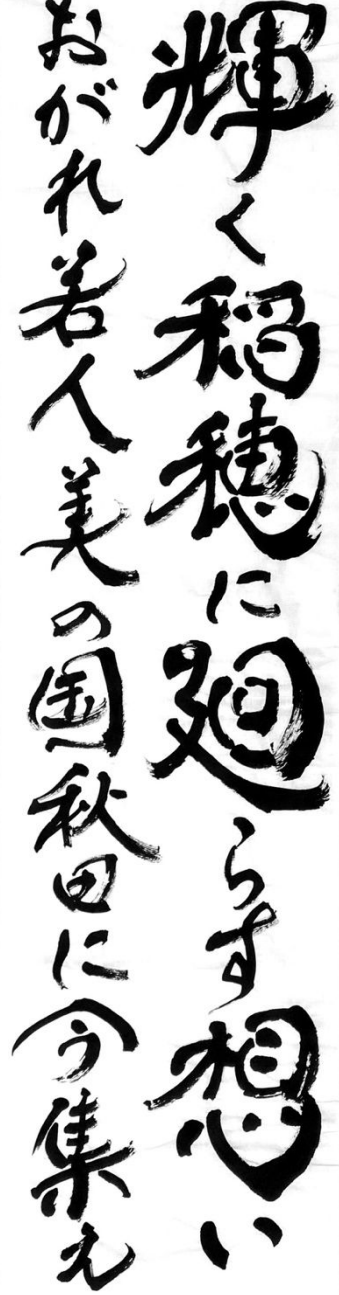 輝く稲穂に廻らす想い
おがれ若人美の国秋田に今集え